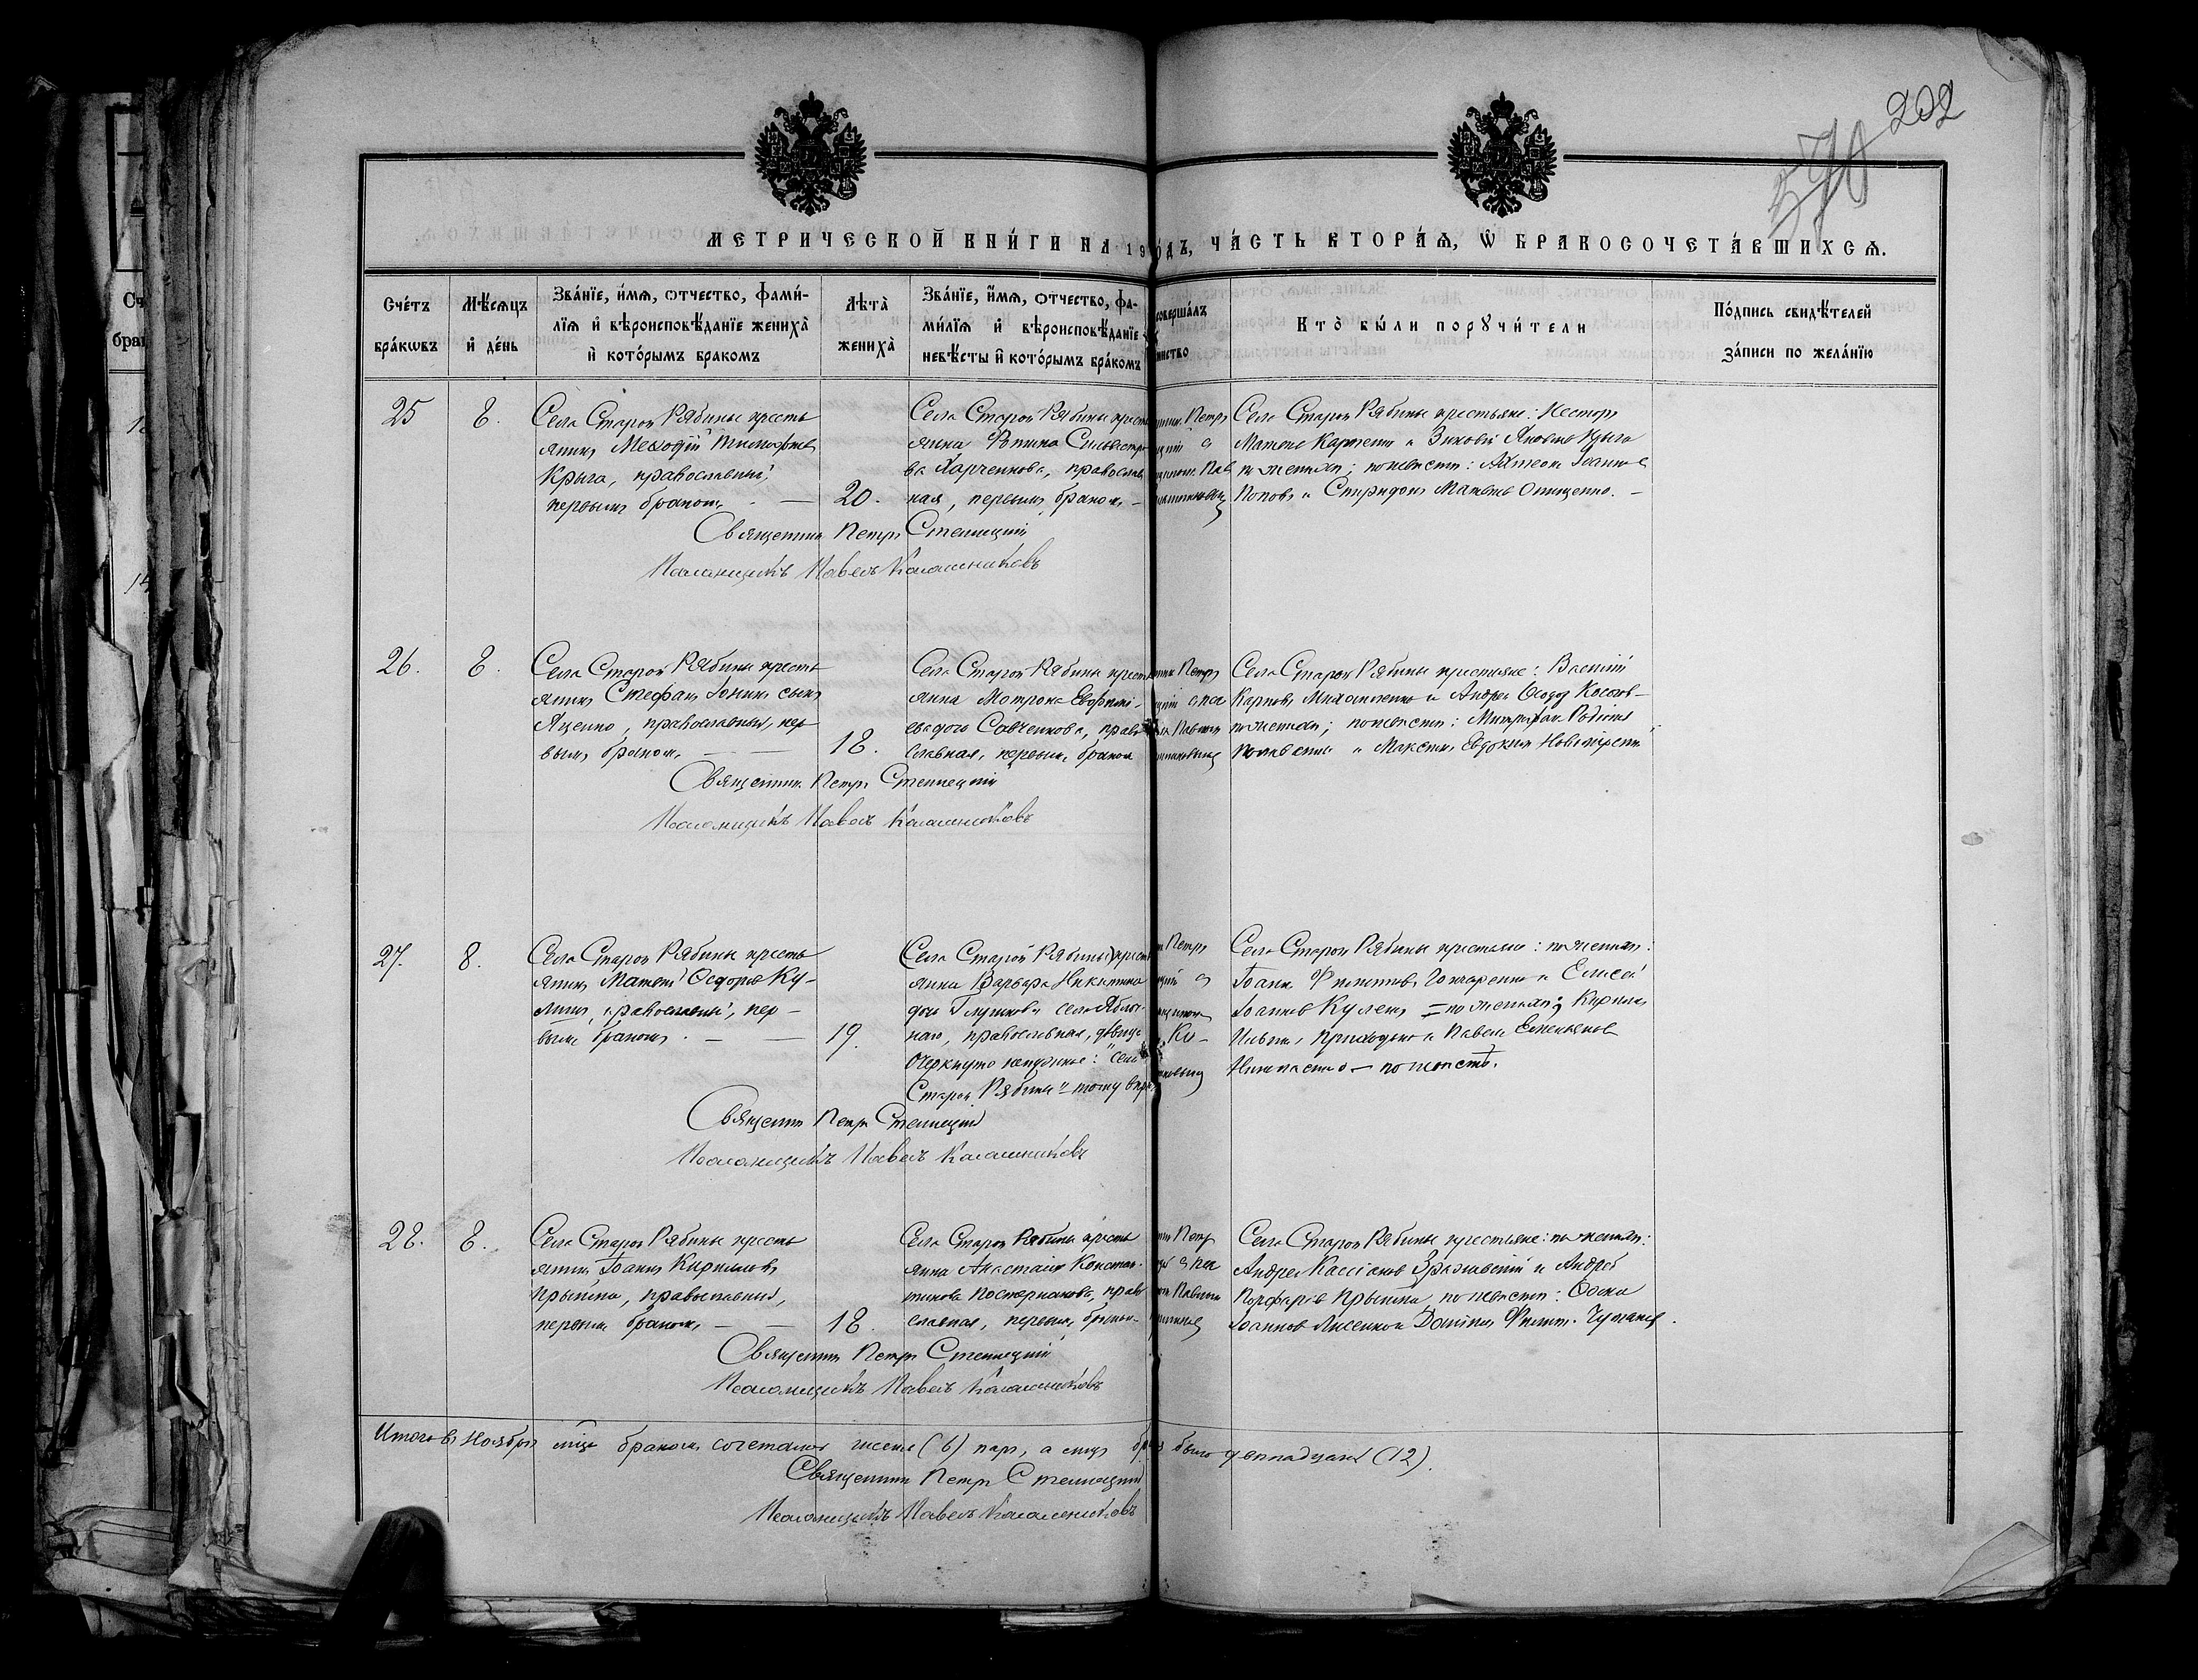 202
570
МЕТРИЧЕСКОЙ КНИ́ГИ НА 19
ОДЪ, ЧА́СТЬ ВТОРА́Ѧ, Ѡ БРАКОСОЧЕТА́ВШИХСѦ.
Сче́тъ бра́кѡвъ
Мѣ́сѧцъ и де́нь
Зва́нїе, и́мѧ, ѻтчество, фами́-
лїѧ и вѣроисповѣ́данїе жениха̀
и кото́рымъ бракомъ
Лѣта̀ жениха̀
Зва́нїе, и́мѧ, ѻтчество, фа-
ми́лїѧ и вѣроисповѣ́данїе
невѣ́сты и кото́рымъ бра́комъ
совершалъ
инство
Кто̀ бы́ли порꙋчи́тели
По́дпись свидѣ́телей
за́писи по жела́нїю
25
8.
Села Старой Рябины кресть
янинъ Меѳодій Тимоѳеевъ
Крыга, православный,
первымъ бракомъ. —
20.
Села Старой Рябины кресть
янка Ѳотина Сильвестро
ва Харченкова, православ
ная, первымъ бракомъ —
Петръ
Села Старой Рябины крестьяне: Несторъ
Матѳеевъ Карпенко и Зиновій Яковлевъ Крыга
по женихѣ; по невѣстѣ: Іоанновъ
Поповъ и Спиридонъ Матѳеевъ Онищенко. —
Священникъ Петръ Стеллецкій
Псаломщикъ Павелъ Калашниковъ
26.
8.
Села Старой Рябины кресть
янинъ Стефанъ Іоакимъ сынъ
Яценко, православный, пер
вымъ бракомъ, — —
18.
Села Старой Рябины кресть
янка Матрона Евѳиміе-
ва дочь Савченкова, право
славная, первымъ бракомъ
Петръ
Села Старой Рябины крестьяне: Василій
Карповъ Михайленко и Андрей Ѳеодор.
по женихѣ; по невѣстѣ: Митрофанъ
и Максимъ Евдоким.
Священникъ Петръ Стеллецкій
Псаломщикъ Павелъ Калашниковъ
27.
8.
Села Старой Рябины кресть
янинъ Матѳей Ѳеодоровъ Ку-
лишъ, православный, пер-
вымъ бракомъ. — —
19.
Села Старой Рябины кресть
янка Варвара Никитина
дочь Глушкова села Яблоч
наго, православная, дѣвица
Очеркнуто : "села
Старой Рябины" тому вѣр
Петръ
Села Старой Рябины крестьяне: по женихѣ:
Іоаннъ Филипповъ Гончаренко и Елисей
Іоанновъ Кулешъ = по женихѣ; Кириллъ
Ильинъ Приходько и Павелъ Емельяновъ
— по невѣстѣ.
Священникъ Петръ Стеллецкій
Псаломщикъ Павелъ Калашниковъ
28.
8.
Села Старой Рябины кресть
янинъ Іоаннъ Кирилловъ
Крышта, православный,
первымъ бракомъ, — —
18.
Села Старой Рябины кресть
янка Анастасія Констан-
тинова Постернакова, право
славная, первымъ бракомъ —
Петръ
Села Старой Рябины крестьяне: по женихѣ:
Андрей Кассіановъ и Андрей
Порфиріевъ Крышта, по невѣстѣ: Ѳома
Іоанновъ Лисенко и Филип. Чумаков.
Священникъ Петръ Стеллецкій
Псаломщикъ Павелъ Калашниковъ
Итого въ Ноябрѣ мцѣ бракомъ сочеталось числомъ (6) паръ, а лицъ было двѣнадцать (12).
Священникъ Петръ Стеллецкій
Псаломщикъ Павелъ Калашниковъ